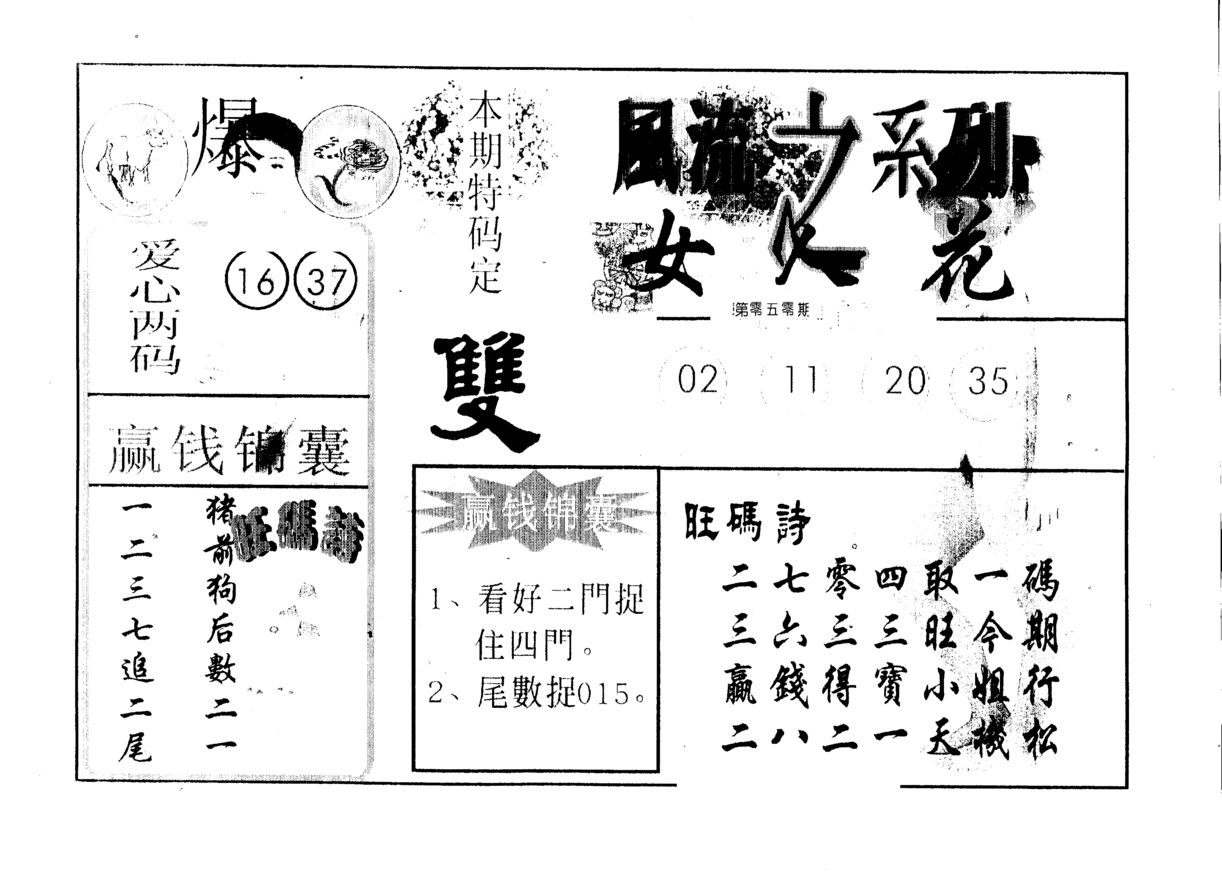 爆
本期特码定
雙
風流之系列
女人花
第零五零期
爱心两码
16 37
02 11 20 35
赢钱锦囊
旺碼詩
猪前狗后數二一
一二三七追二尾
赢钱锦囊
1、看好二門捉
住四門。
2、尾數捉015。
旺碼詩
二七零四取一碼
三六三三旺今期
贏錢得寶小姐行
二八二一天機松